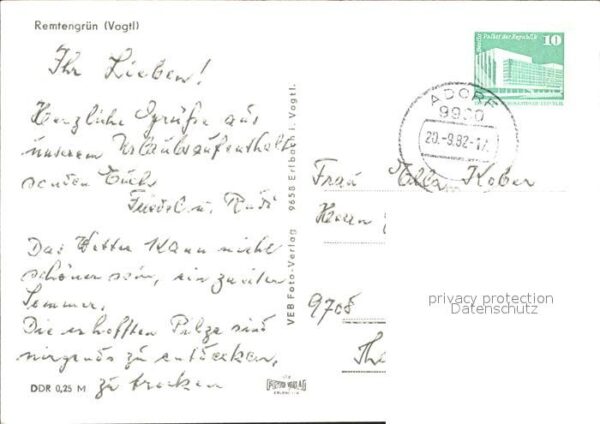 Remtengrün (Vogtl)
Ihr Lieben!
Herzliche Grüße aus
unserem Urlaubsaufenthalt
senden Euch
Friedel u. Rudi
Das Wetter kann nicht
schöner sein, ein zweiter
Sommer.
Die erhofften Pilze sind
nirgends zu entdecken,
zu trocken
DDR 0,25 M
VEB Foto-Verlag 9658 Erlbach i. Vogtl.
FOTO VERLAG
ERLBACH
Berlin Palast der Republik 10
ADORF
9930
20.-9.82-17
Frau Ella Kober
Herrn
9708
The
privacy protection
Datenschutz